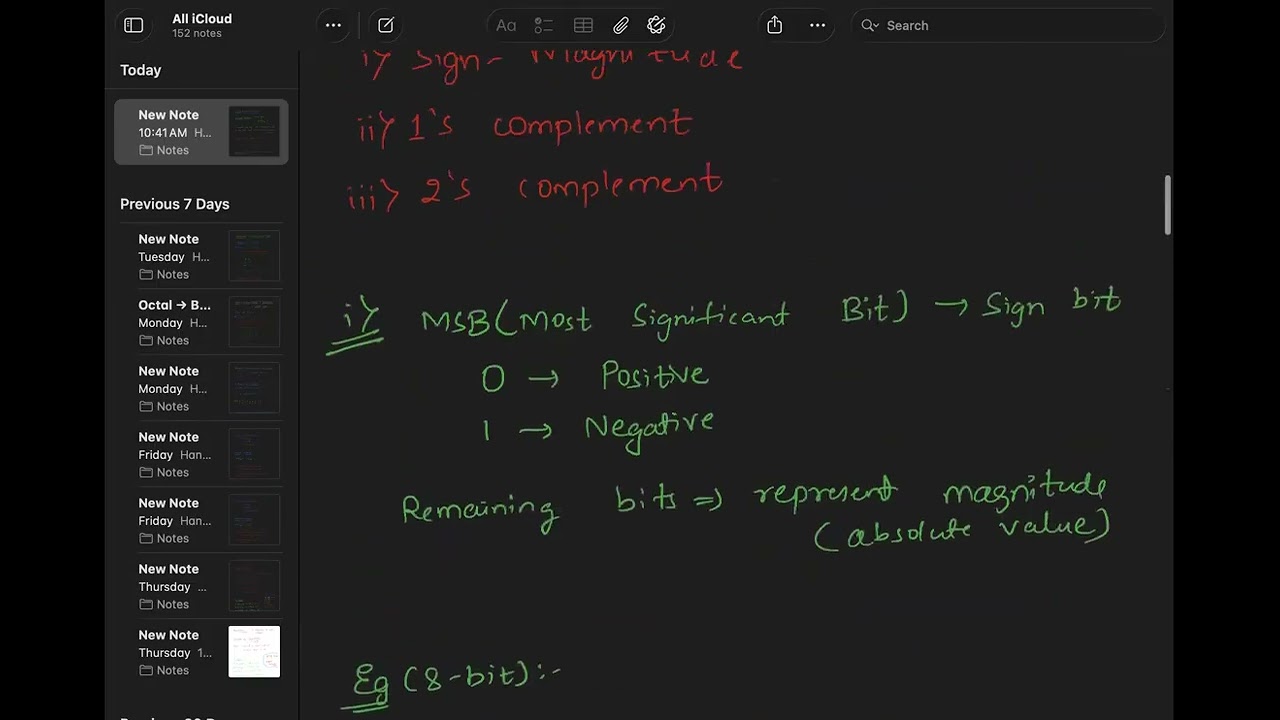 All iCloud
152 notes
Aa
Search
Today
New Note
10:41 AM H...
Notes
Previous 7 Days
New Note
Tuesday H...
Notes
Octal → B...
Monday H...
Notes
New Note
Monday H...
Notes
New Note
Friday Han...
Notes
New Note
Friday Han...
Notes
New Note
Thursday ...
Notes
New Note
Thursday 1...
Notes
i> Sign- Magnitude
ii> 1's complement
iii> 2's complement
i> MSB (Most Significant Bit) → Sign bit
0 → Positive
1 → Negative
Remaining bits => represent magnitude
(absolute value)
Eg (8-bit) :-